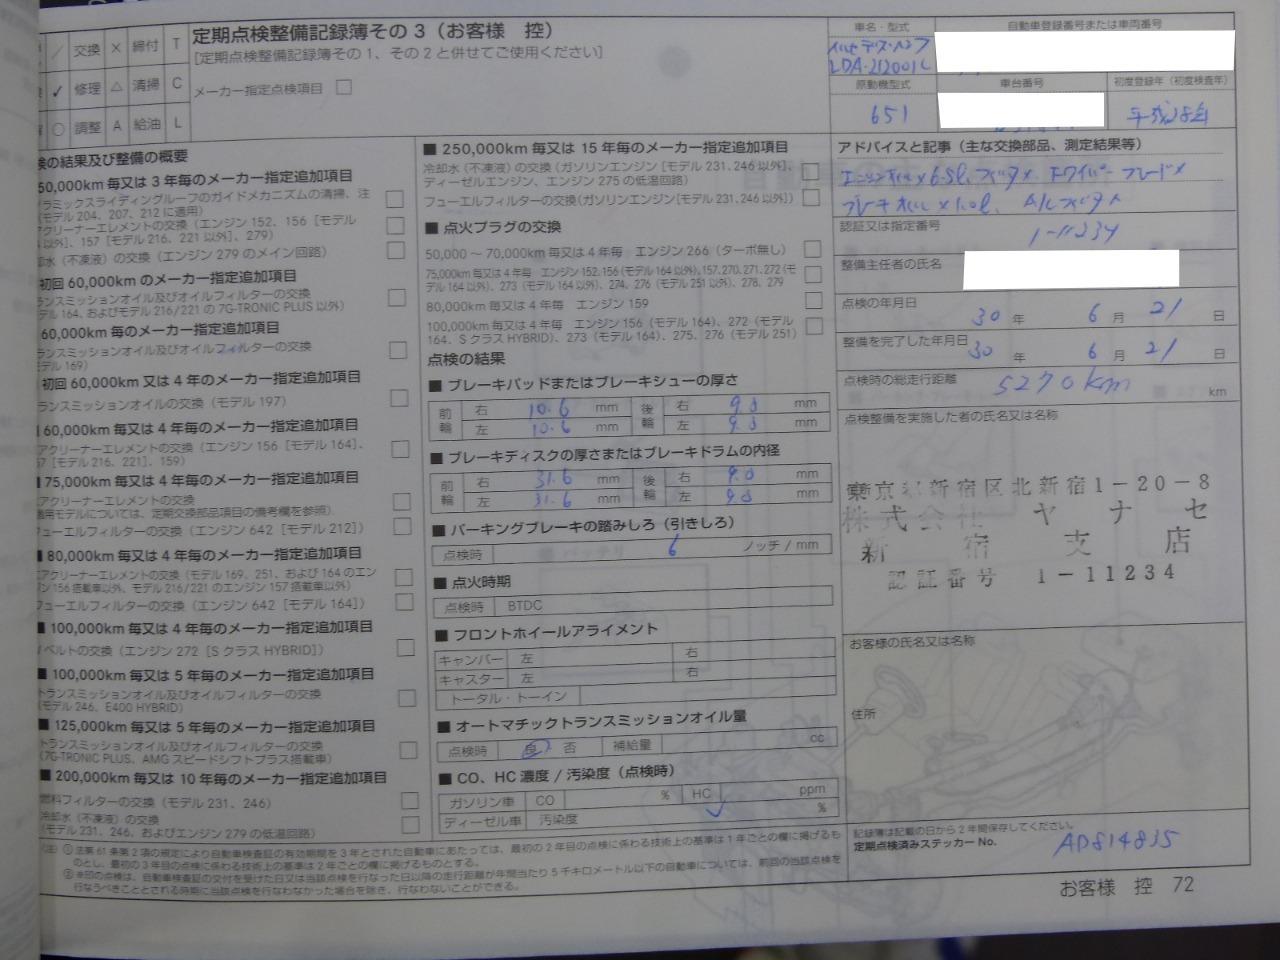 交換 × 締付 T
修理 △ 清掃 C
調整 A 給油 L
定期点検整備記録簿その3（お客様 控）
［定期点検整備記録簿その1、その2と併せてご使用ください］
メーカー指定点検項目
車名・型式
LDA-212001C
自動車登録番号または車両番号
原動機型式
651
車台番号
初度登録年（初度検査年）
検の結果及び整備の概要
50,000km毎又は3年毎のメーカー指定追加項目
ラミックスライディングルーフのガイドメカニズムの清掃、注
（モデル 204、207、212に適用）
アクリーナーエレメントの交換（エンジン 152、156［モデル
以外］、157［モデル 216、221以外］、279）
却水（不凍液）の交換（エンジン 279のメイン回路）
初回60,000kmのメーカー指定追加項目
ランスミッションオイル及びオイルフィルターの交換
デル 164、およびモデル 216/221の7G-TRONIC PLUS以外）
60,000km毎のメーカー指定追加項目
ランスミッションオイル及びオイルフィルターの交換
デル 169）
初回60,000km又は4年のメーカー指定追加項目
ランスミッションオイルの交換（モデル 197）
60,000km毎又は4年毎のメーカー指定追加項目
アクリーナーエレメントの交換（エンジン 156［モデル 164］、
［モデル 216、221］、159）
75,000km毎又は4年毎のメーカー指定追加項目
アクリーナーエレメントの交換
用モデルについては、定期交換部品項目の備考欄を参照）
ューエルフィルターの交換（エンジン 642［モデル 212］）
80,000km毎又は4年毎のメーカー指定追加項目
アクリーナーエレメントの交換（モデル 169、251、および 164のエン
ン 156搭載車以外、モデル 216/221のエンジン 157搭載車以外）
ューエルフィルターの交換（エンジン 642［モデル 164］）
100,000km毎又は4年毎のメーカー指定追加項目
ベルトの交換（エンジン 272［Sクラス HYBRID］）
■ 100,000km毎又は5年毎のメーカー指定追加項目
トランスミッションオイル及びオイルフィルターの交換
（モデル 246、E400 HYBRID）
■ 125,000km毎又は5年毎のメーカー指定追加項目
トランスミッションオイル及びオイルフィルターの交換
（7G-TRONIC PLUS、AMGスピードシフトプラス搭載車）
■ 200,000km毎又は10年毎のメーカー指定追加項目
燃料フィルターの交換（モデル 231、246）
冷却水（不凍液）の交換
（モデル 231、246、およびエンジン 279の低温回路）
■ 250,000km毎又は15年毎のメーカー指定追加項目
冷却水（不凍液）の交換（ガソリンエンジン［モデル 231、246以外］、
ディーゼルエンジン、エンジン 275の低温回路）
フューエルフィルターの交換（ガソリンエンジン［モデル 231、246以外］）
■ 点火プラグの交換
50,000～70,000km毎又は4年毎 エンジン 266（ターボ無し）
75,000km毎又は4年毎 エンジン 152、156（モデル 164以外）、157、270、271、272（モ
デル 164以外）、273（モデル 164以外）、274、276（モデル 251以外）、278、279
80,000km毎又は4年毎 エンジン 159
100,000km毎又は4年毎 エンジン 156（モデル 164）、272（モデル
164、Sクラス HYBRID）、273（モデル 164）、275、276（モデル 251）
点検の結果
■ ブレーキパッドまたはブレーキシューの厚さ
前輪 右 10.6 mm 後輪 右 mm
左 10.6 mm 左 mm
■ ブレーキディスクの厚さまたはブレーキドラムの内径
前輪 右 31.6 mm 後輪 右 mm
左 31.6 mm 左 mm
■ パーキングブレーキの踏みしろ（引きしろ）
点検時 6 ノッチ / mm
■ 点火時期
点検時 BTDC
■ フロントホイールアライメント
キャンバー 左 右
キャスター 左 右
トータル・トーイン
■ オートマチックトランスミッションオイル量
点検時 良 否 補給量 cc
■ CO、HC濃度 / 汚染度（点検時）
ガソリン車 CO % HC ppm
ディーゼル車 汚染度 %
アドバイスと記事（主な交換部品、測定結果等）
認証又は指定番号
1-11234
整備主任者の氏名
点検の年月日
30 年 6 月 21 日
整備を完了した年月日
30 年 6 月 21 日
点検時の総走行距離
5270km km
点検整備を実施した者の氏名又は名称
東京都新宿区北新宿1-20-8
株式会社 ヤナセ
新宿支店
認証番号 1-11234
お客様の氏名又は名称
住所
記録簿は記載の日から2年間保存してください。
定期点検済みステッカー No. AD814835
（注）① 法第61条第2項の規定により自動車検査証の有効期間を3年とされた自動車にあたっては、最初の2年目の点検に係わる技術上の基準は1年ごとの欄に掲げるも
のとし、最初の3年目の点検に係わる技術上の基準は2年ごとの欄に掲げるものとする。
② ※印の点検は、自動車検査証の交付を受けた日又は当該点検を行なった日以降の走行距離が年間当たり5千キロメートル以下の自動車については、前回の当該点検を
行なうべきこととされる時期に当該点検を行なわなかった場合を除き、行なわないことができる。
お客様 控 72